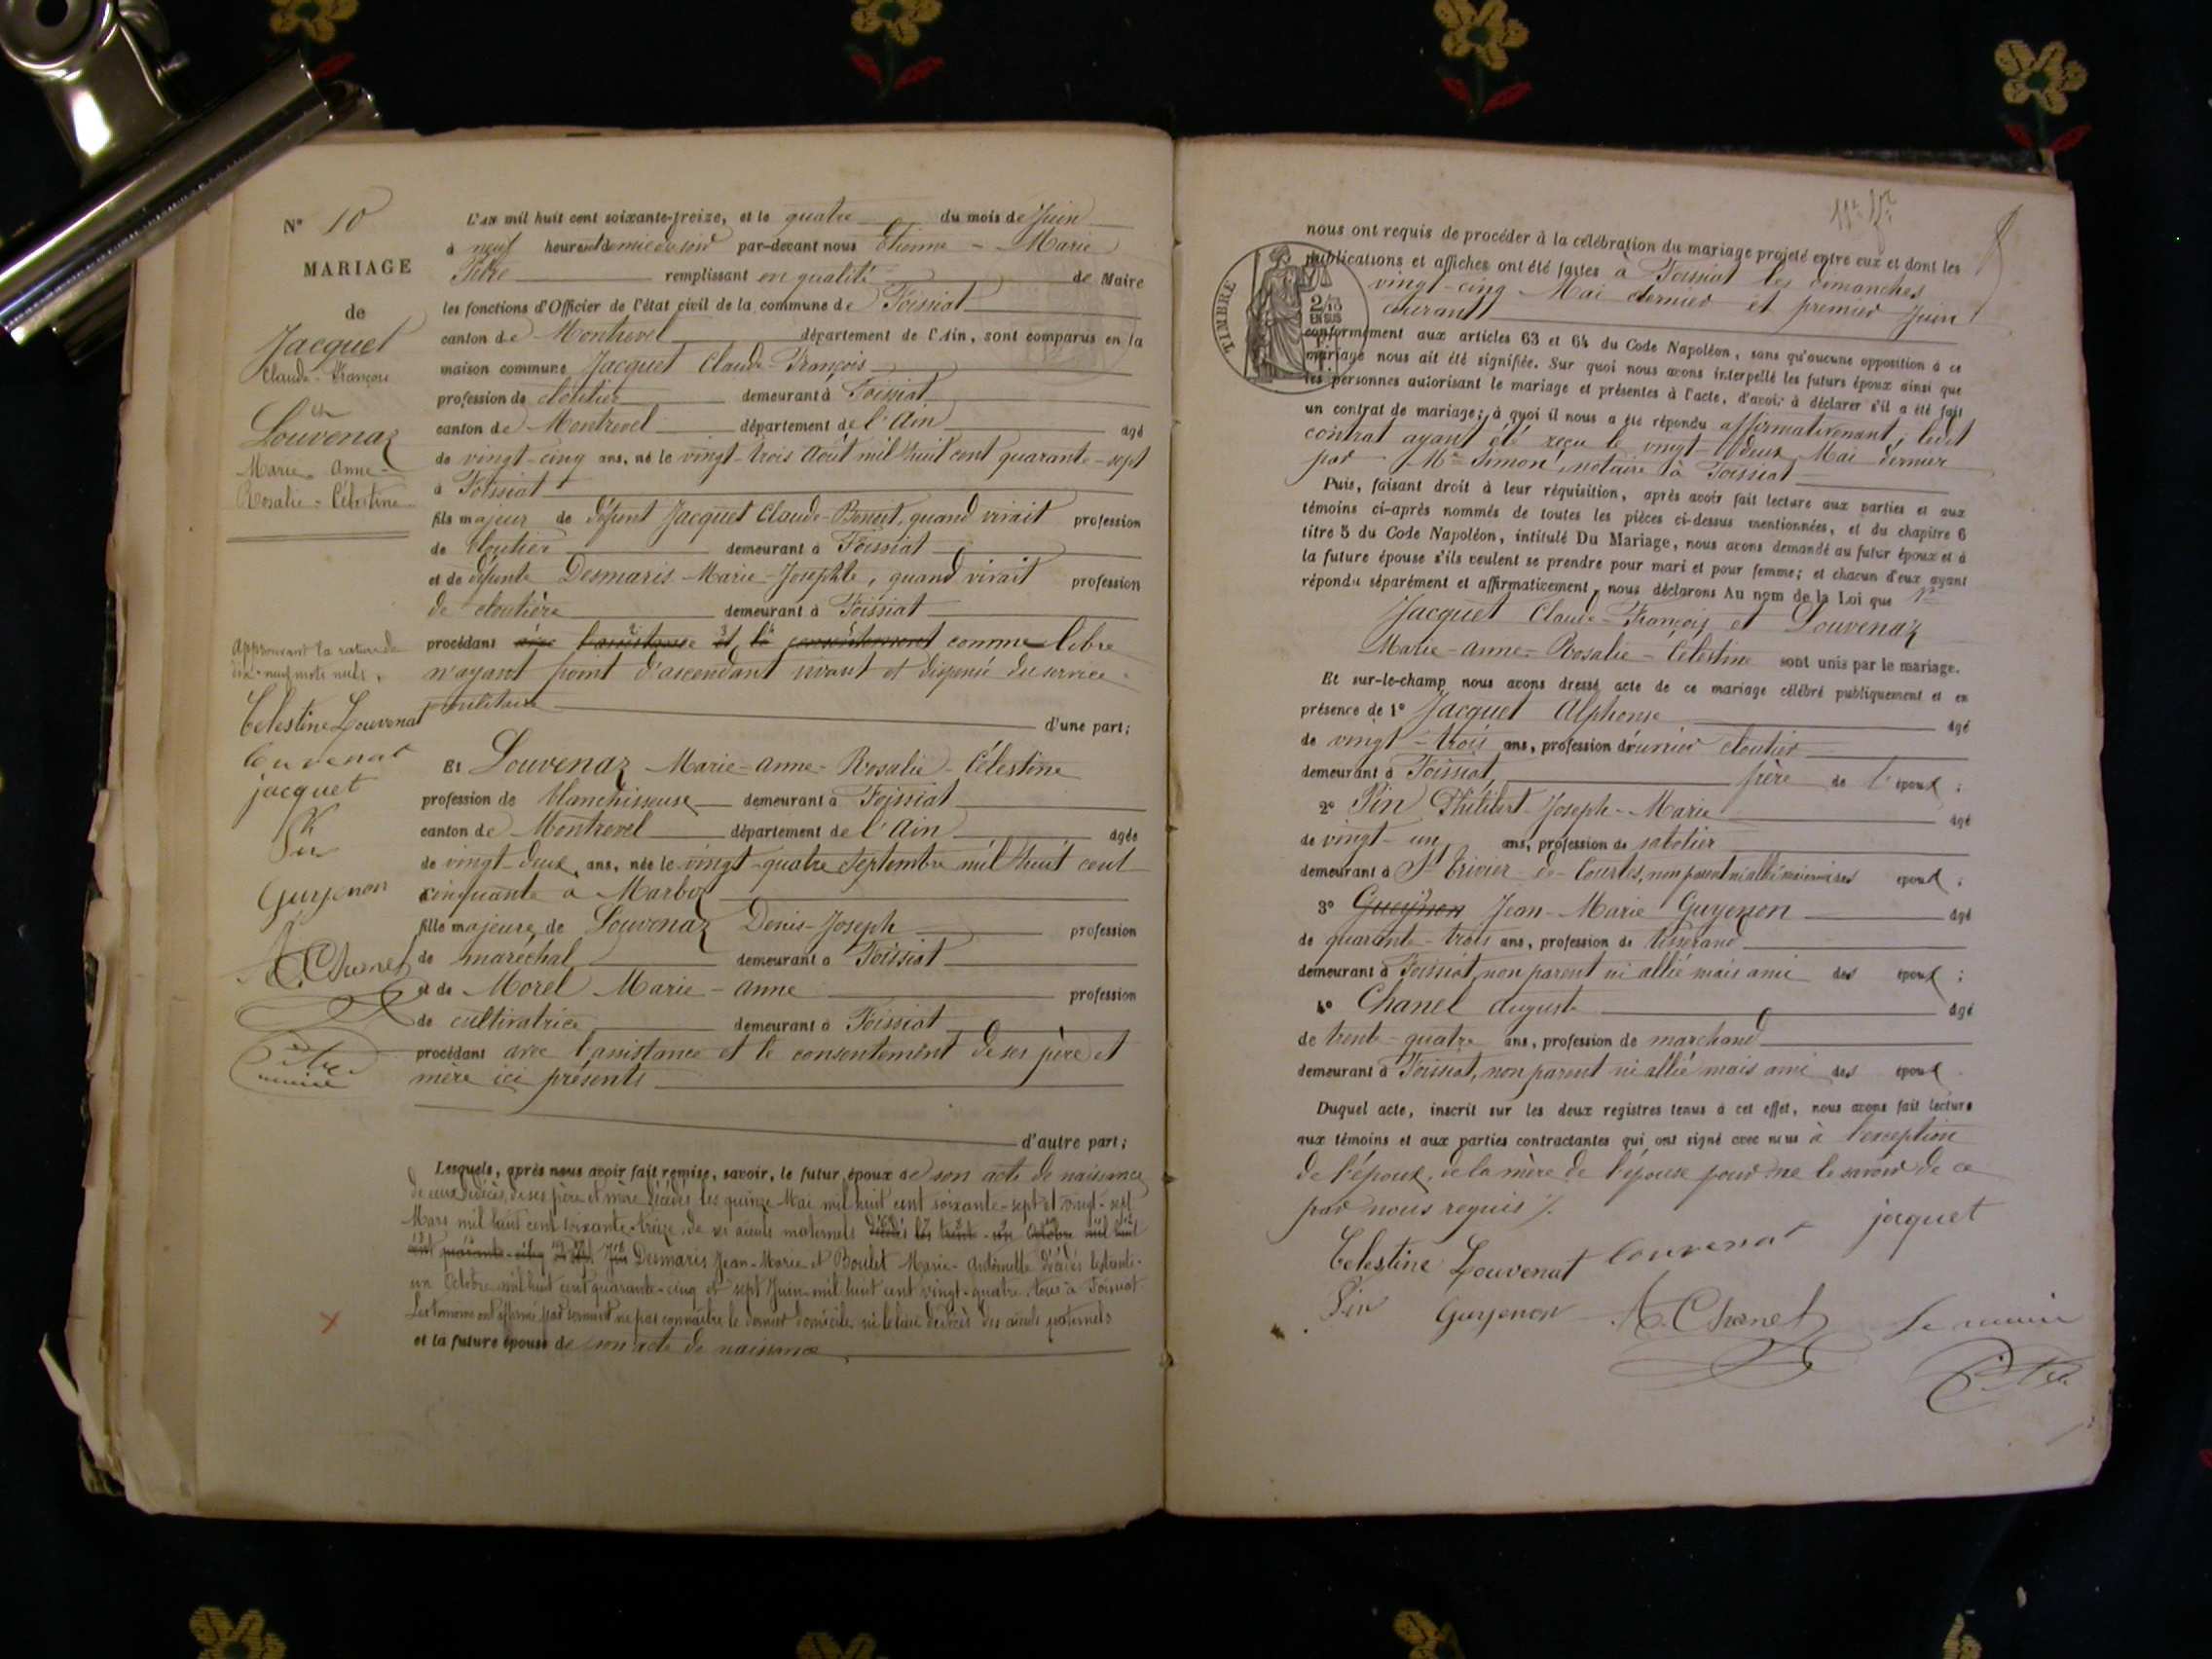 N° 10
MARIAGE
de
Jacquet
Claude-François
&
Louvenaz
Marie-Anne-
Rosalie-Célestine
Approuvant la rature de
dix-neuf mots nuls.
Celestine Louvenat
Louvenat
jacquet
Pin
Guyenon
A. Chanel
Pitre
maire
L'an mil huit cent soixante-treize, et le quatre du mois de Juin
à neuf heures et demie du soir par-devant nous Etienne-Marie
Pitre remplissant en qualité de Maire
les fonctions d'Officier de l'état civil de la commune de Foissiat
canton de Montrevel département de l'Ain, sont comparus en la
maison commune Jacquet Claude-François
profession de cloutier demeurant à Foissiat
canton de Montrevel département de l'Ain âgé
de vingt-cinq ans, né le vingt-trois Août mil huit cent quarante-sept
à Foissiat
fils majeur de défunt Jacquet Claude-Benoit, quand vivait profession
de cloutier demeurant à Foissiat
et de défunte Desmaris Marie-Josephte, quand vivait profession
de cloutière demeurant à Foissiat
procédant avec l'assistance et le consentement comme libre
n'ayant point d'ascendant vivant et dispensé du service
militaire d'une part;
Et Louvenaz Marie-Anne-Rosalie-Célestine
profession de blanchisseuse demeurant à Foissiat
canton de Montrevel département de l'Ain âgée
de vingt-deux ans, née le vingt-quatre Septembre mil huit cent
cinquante à Marboz
fille majeure de Louvenaz Denis-Joseph profession
de maréchal demeurant à Foissiat
et de Morel Marie-Anne profession
de cultivatrice demeurant à Foissiat
procédant avec l'assistance et le consentement de ses père et
mère ici présents
d'autre part;
Lesquels, après nous avoir fait remise, savoir, le futur époux de son acte de naissance
de ceux de décès, de ses père et mère décédés les quinze Mai mil huit cent soixante-sept et vingt-sept
Mars mil huit cent soixante-treize, de ses aïeuls maternels décédés les trente-un Octobre mil huit
cent quarante-cinq et sept Juin Desmaris Jean-Marie et Boulet Marie-Antoinette décédés les trente-
un Octobre mil huit cent quarante-cinq et sept Juin mil huit cent vingt-quatre tous à Foissiat
Les témoins ont affirmé par serment ne pas connaître le dernier domicile, ni le lieu de décès des aïeuls paternels
et la future épouse de son acte de naissance
nous ont requis de procéder à la célébration du mariage projeté entre eux et dont les
publications et affiches ont été faites à Foissiat les dimanches
vingt-cinq Mai dernier et premier Juin
courant
TIMBRE
2/10
EN SUS
conformément aux articles 63 et 64 du Code Napoléon, sans qu'aucune opposition à ce
mariage nous ait été signifiée. Sur quoi nous avons interpellé les futurs époux ainsi que
les personnes autorisant le mariage et présentes à l'acte, d'avoir à déclarer s'il a été fait
un contrat de mariage; à quoi il nous a été répondu affirmativement; ledit
contrat ayant été reçu le vingt-deux Mai dernier
par Me Simon, notaire à Foissiat
Puis, faisant droit à leur réquisition, après avoir fait lecture aux parties et aux
témoins ci-après nommés de toutes les pièces ci-dessus mentionnées, et du chapitre 6
titre 5 du Code Napoléon, intitulé Du Mariage, nous avons demandé au futur époux et à
la future épouse s'ils veulent se prendre pour mari et pour femme; et chacun d'eux ayant
répondu séparément et affirmativement, nous déclarons Au nom de la Loi que
Jacquet Claude-François et Louvenaz
Marie-Anne-Rosalie-Célestine sont unis par le mariage.
Et sur-le-champ nous avons dressé acte de ce mariage célébré publiquement et en
présence de 1° Jacquet Alphonse âgé
de vingt-trois ans, profession d'ouvrier cloutier
demeurant à Foissiat, frère de l'époux;
2° Pin Philibert-Joseph-Marie âgé
de vingt-un ans, profession de sabotier
demeurant à St Trivier-de-Courtes, non parent ni allié mais ami des époux;
3° Gueynon Jean-Marie Guyenon âgé
de quarante-trois ans, profession de tisserand
demeurant à Foissiat, non parent ni allié mais ami des époux;
4° Chanel Auguste âgé
de trente-quatre ans, profession de marchand
demeurant à Foissiat, non parent ni allié mais ami des époux
Duquel acte, inscrit sur les deux registres tenus à cet effet, nous avons fait lecture
aux témoins et aux parties contractantes qui ont signé avec nous à l'exception
de l'époux, de la mère de l'épouse pour ne le savoir de ce
par nous requis /.
Celestine Louvenat Louvenat jacquet
Pin Guyenon A. Chanel Le maire
Pitre